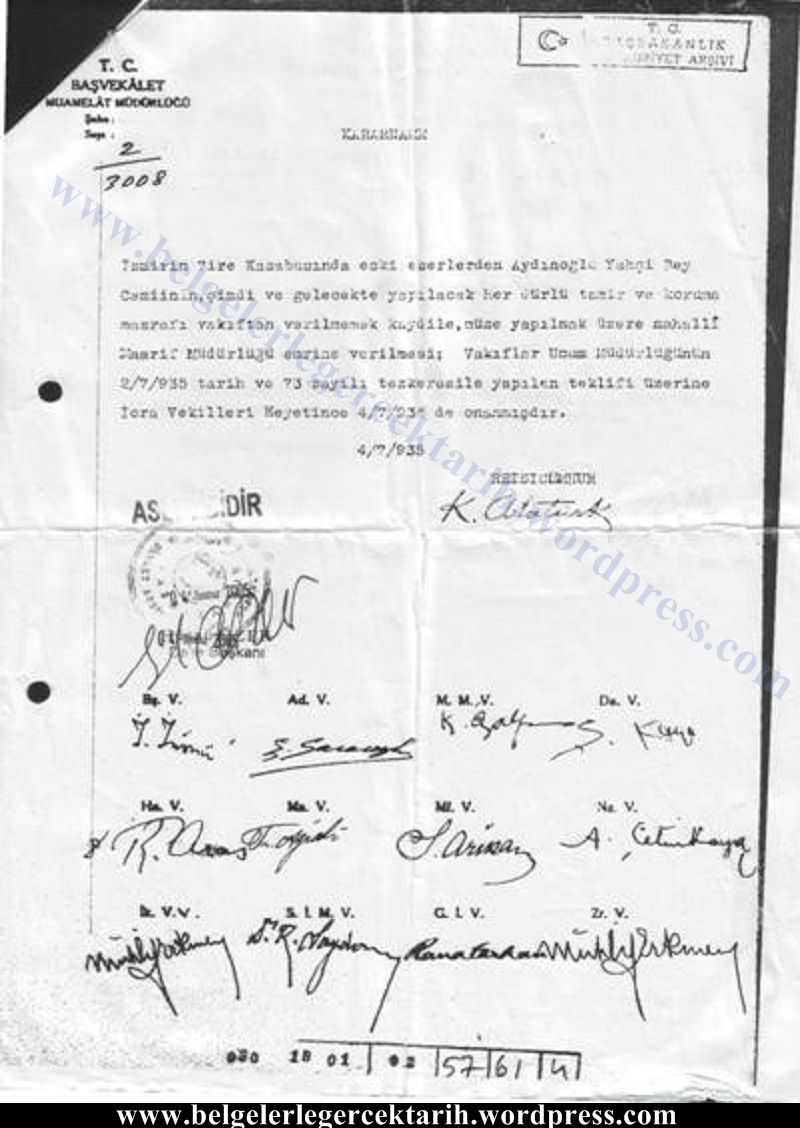 T. C.
BAŞBAKANLIK
ARŞİVİ
T. C.
BAŞVEKÂLET
MUAMELÂT MÜDÜRLÜĞÜ
Şube :
Sayı :
2
3008
KARARNAME
İzmirin Tire Kasabasında eski eserlerden Aydınoğlu Yahşi Bey
Camiinin,şimdi ve gelecekte yapılacak her türlü tamir ve koruma
masrafı vakıftan verilmemek kaydile,müze yapılmak üzere mahallî
Maarif Müdürlüğü emrine verilmesi; Vakıflar Umum Müdürlüğünün
2/7/935 tarih ve 73 sayılı tezkeresile yapılan teklifi üzerine
İcra Vekilleri Heyetince 4/7/935 de onanmışdır.
4/7/935
REİSİCÜMHUR
K. Atatürk
Başkanı
Bş. V. Ad. V. M. M. V. Da. V.
İ. İnönü Ş. Saracoğlu K. Özalp Ş. Kaya
Ha. V. Ma. V. Mf. V. Na. V.
R. Aras S. Arıkan A. Çetinkaya
İk. V. V. S. İ. M. V. G. İ. V. Zr. V.
Muhlis Erkmen Dr. R. Saydam Rana Tarhan Muhlis Erkmen
030 18 01 02 57 61 4
www.belgelerlegercektarih.wordpress.com
www.belgelerlegercektarih.wordpress.com